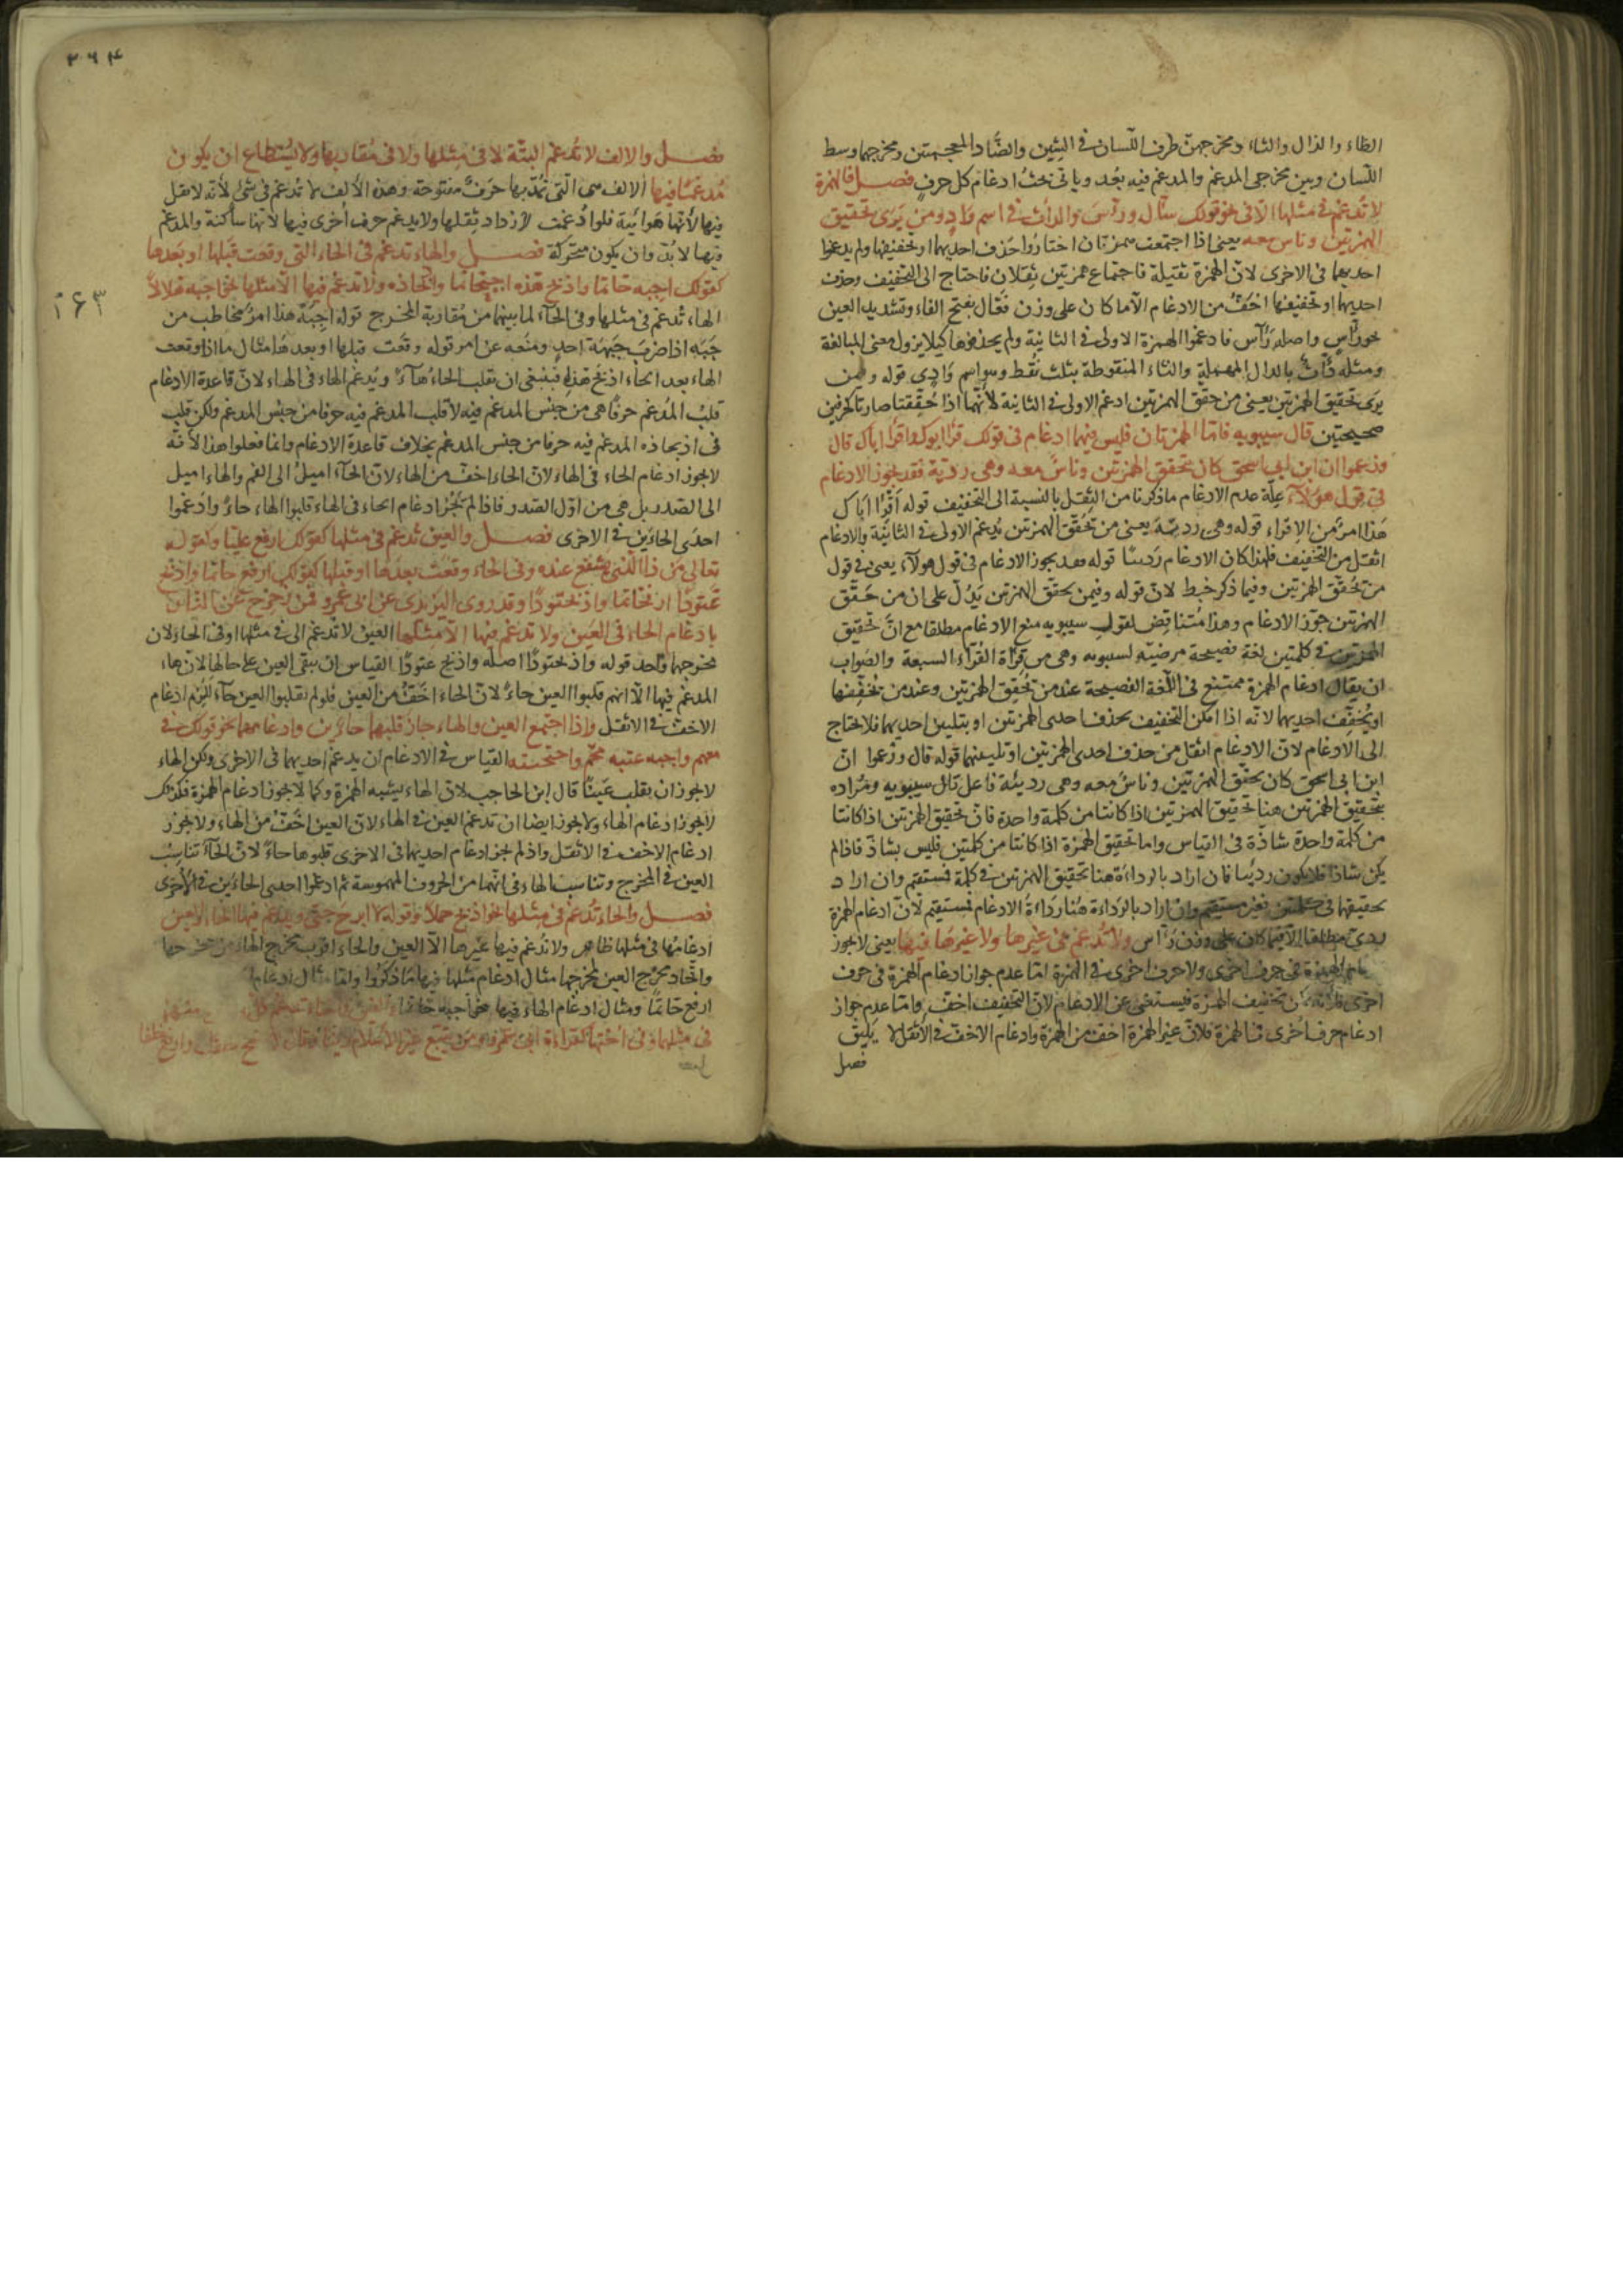 الظاء والذال والثاء ومخرجهن طرف اللسان في الشين والضاد المعجمتين ومخرجهما وسط
اللسان وبين مخرجي المدغم والمدغم فيه بعد وياتي بحث ادغام كل حرف فصل فالهمزة
لا تدغم في مثلها الا في نحو قولك سأّل ورأّس والدأّث في اسم واد ومن يرى تحقيق
الهمزتين وناس معه يعني اذا اجتمعت همزتان اختاروا حذف احديهما او تخفيفها ولم يدغموا
احديهما في الاخرى لان الهمزة ثقيلة فاجتماع همزتين ثقلان فاحتاج الى التخفيف وحذف
احديهما او تخفيفها اخف من الادغام الا ما كان على وزن فعّال بفتح الفاء وتشديد العين
نحو رأّس واصله رأآس فادغموا الهمزة الاولى في الثانية ولم يحذفوها كيلا يزول معنى المبالغة
ومثله دأّث بالدال المهملة والثاء المنقوطة بثلث نقط وهو اسم وادي قوله وفيمن
يرى تحقيق الهمزتين يعني من حقق الهمزتين ادغم الاولى في الثانية لانهما اذا حققتا صارتا كحرفين
صحيحتين قال سيبويه فاما الهمزتان فليس فيهما ادغام في قولك قرأ ابوك واقرأ اباك قال
وزعموا ان ابن ابي اسحق كان يحقق الهمزتين وناس معه وهي رديّة فقد يجوز الادغام
في قول هؤلاء علة عدم الادغام ما ذكرنا من الثقل بالنسبة الى التخفيف قوله اقرأ اباك
هذا امر من الاقراء قوله وهي رديّة يعني من يحقق الهمزتين يدغم الاولى في الثانية والادغام
اثقل من التخفيف فلهذا كان الادغام رديّا قوله فقد يجوز الادغام في قول هولاء يعني في قول
من يحقق الهمزتين وفيما ذكر خبط لان قوله وفيمن يحقق الهمزتين يدل على ان من حقق
الهمزتين جوز الادغام وهذا متناقض لقول سيبويه منع الادغام مطلقا مع ان تحقيق
الهمزتين في كلمتين لغة فصيحة مرضية لسيبويه وهي من قرأة القراء السبعة والصواب
ان يقال ادغام الهمزة ممتنع في اللغة الفصيحة عند من يحقق الهمزتين وعند من يخففها
او يخفف احديهما لانه اذا امكن التخفيف بحذف احدى الهمزتين او بتليين احديهما فلا يحتاج
الى الادغام لان الادغام اثقل من حذف احدى الهمزتين او تليينهما قوله قال وزعموا ان
ابن ابي اسحق كان يحقق الهمزتين وناس معه وهي رديئة فاعل قال سيبويه ومراده
بتحقيق الهمزتين هنا تحقيق الهمزتين اذا كانتا من كلمة واحدة فان تحقيق الهمزتين اذا كانتا
من كلمة واحدة شاذة في القياس واما تحقيق الهمزة اذا كانتا من كلمتين فليس بشاذ فاذا لم
يكن شاذا فلا يكون رديّا فان اراد بالرداءة هنا تحقيق الهمزتين في كلمة فمستقيم وان اراد
تحقيقها في كلمتين فغير مستقيم وان اراد بالرداءة هنا رداءة الادغام فمستقيم لان ادغام الهمزة
ردي مطلقا الا فيما كان على وزن رأّس ولا تدغم في غيرها ولا غيرها فيها يعني لا يجوز
الهمزة في حرف اخرى ولا حرف اخرى في الهمزة اما عدم جواز ادغام الهمزة في حرف
اخرى فلانه تخفيف الهمزة فيستغنى عن الادغام لان التخفيف اخف واما عدم جواز
ادغام حرف اخرى في الهمزة فلان غير الهمزة اخف من الهمزة وادغام الاخف في الاثقل لا يليق
فصل
۲۶۴
۱۶۳
فصل والالف لا تدغم البتة لا في مثلها ولا في مقاربها ولا يستطاع ان يكون
مدغما فيها الالف هي التي تمد بها حرف مفتوحة وهذه الالف لا تدغم في شئ لانه لا ثقل
فيها لانها هوائية فلو ادغمت لازداد ثقلها ولا يدغم حرف اخرى فيها لانها ساكنة والمدغم
فيها لا بد وان يكون متحركة فصل والهاء تدغم في الحاء التي وقعت قبلها او بعدها
كقولك اجبه حاتما واذبح هذه اجبحاتما واذبحاذه ولا تدغم فيها الا مثلها نحو اجبه هلالا
الهاء تدغم في مثلها وفي الحاء لما بينهما من مقاربة المخرج قوله اجبه هذا امر مخاطب من
جبه اذا ضرب جبهة احد ومنعه عن امر قوله وقعت قبلها او بعدها مثال ما اذا وقعت
الهاء بعد الحاء اذبح هذه فينبغي ان تقلب الحاء هاء ويدغم الهاء في الهاء لان قاعدة الادغام
قلب المدغم حرفا هي من جنس المدغم فيه لا قلب المدغم فيه حرفا من جنس المدغم ولكن قلب
في اذبحاذه المدغم فيه حرفا من جنس المدغم بخلاف قاعدة الادغام وانما فعلوا هذا لانه
لا يجوز ادغام الحاء في الهاء لان الحاء اخف من الهاء لان الحاء اميل الى الفم والهاء اميل
الى الصدر بل هي من اول الصدر فاذا لم يجز ادغام الحاء في الهاء قلبوا الهاء حاء وادغموا
احدى الحاءين في الاخرى فصل والعين تدغم في مثلها كقولك ارفع عليا وكقوله
تعالى من ذا الذي يشفع عنده وفي الحاء وقعت بعدها او قبلها كقولك ارفع حاتما واذبح
عتودا ارفحاتما واذبحتودا وقد روى اليزيدي عن ابي عمرو فمن زحزح عن النار
بادغام الحاء في العين ولا تدغم فيها الا مثلها العين لا تدغم الا في مثلها او في الحاء لان
مخرجهما واحد قوله واذبحتودا اصله واذبح عتودا القياس ان يبقى العين على حالها لانها
المدغم فيها الا انهم قلبوا العين حاء لان الحاء اخف من العين فلو لم يقلبوا العين حاء للزم ادغام
الاخف في الاثقل واذا اجتمع العين والهاء جاز قلبهما حاءين وادغامهما نحو قولك في
معهم واجبه عتبه محّم واجبحّتبه القياس في الادغام ان يدغم احديهما في الاخرى ولكن الهاء
لا يجوز ان يقلب عينا قال ابن الحاجب لان الهاء يشبه الهمزة وكما لا يجوز ادغام الهمزة فكذلك
لا يجوز ادغام الهاء ولا يجوز ايضا ان تدغم العين في الهاء لان العين اخف من الهاء ولا يجوز
ادغام الاخف في الاثقل واذ لم يجز ادغام احديهما في الاخرى قلبوها حاء لان الحاء تناسب
العين في المخرج وتناسب الهاء في انهما من الحروف المهموسة ثم ادغموا احدى الحاءين في الاخرى
فصل والحاء تدغم في مثلها نحو اذبح حملا وقوله لا ابرح حتى ويدغم فيها الهاء والعين
ادغامها في مثلها ظاهر ولا تدغم فيها غيرها الا العين والحاء اقرب مخرج الهاء من مخرجها
واتحاد مخرج العين لمخرجها مثال ادغام مثلها فيها ما ذكروا ومثال ادغام
ارفع حاتما ومثال ادغام الهاء فيها نحو اجبه حاتما
في مثلها وفي اختها كقراءة ابي عمرو ومن يبتغ غير الاسلام دينا